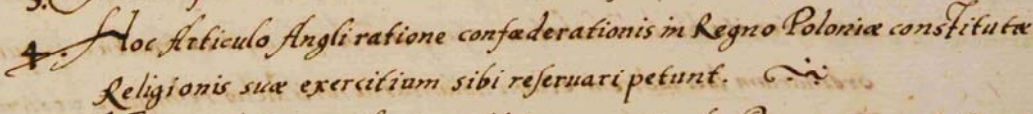 4. Hoc Articulo Angli ratione confæderationis in Regno Poloniæ constitutæ
Religionis suæ exercitium sibi reſeruari petunt.